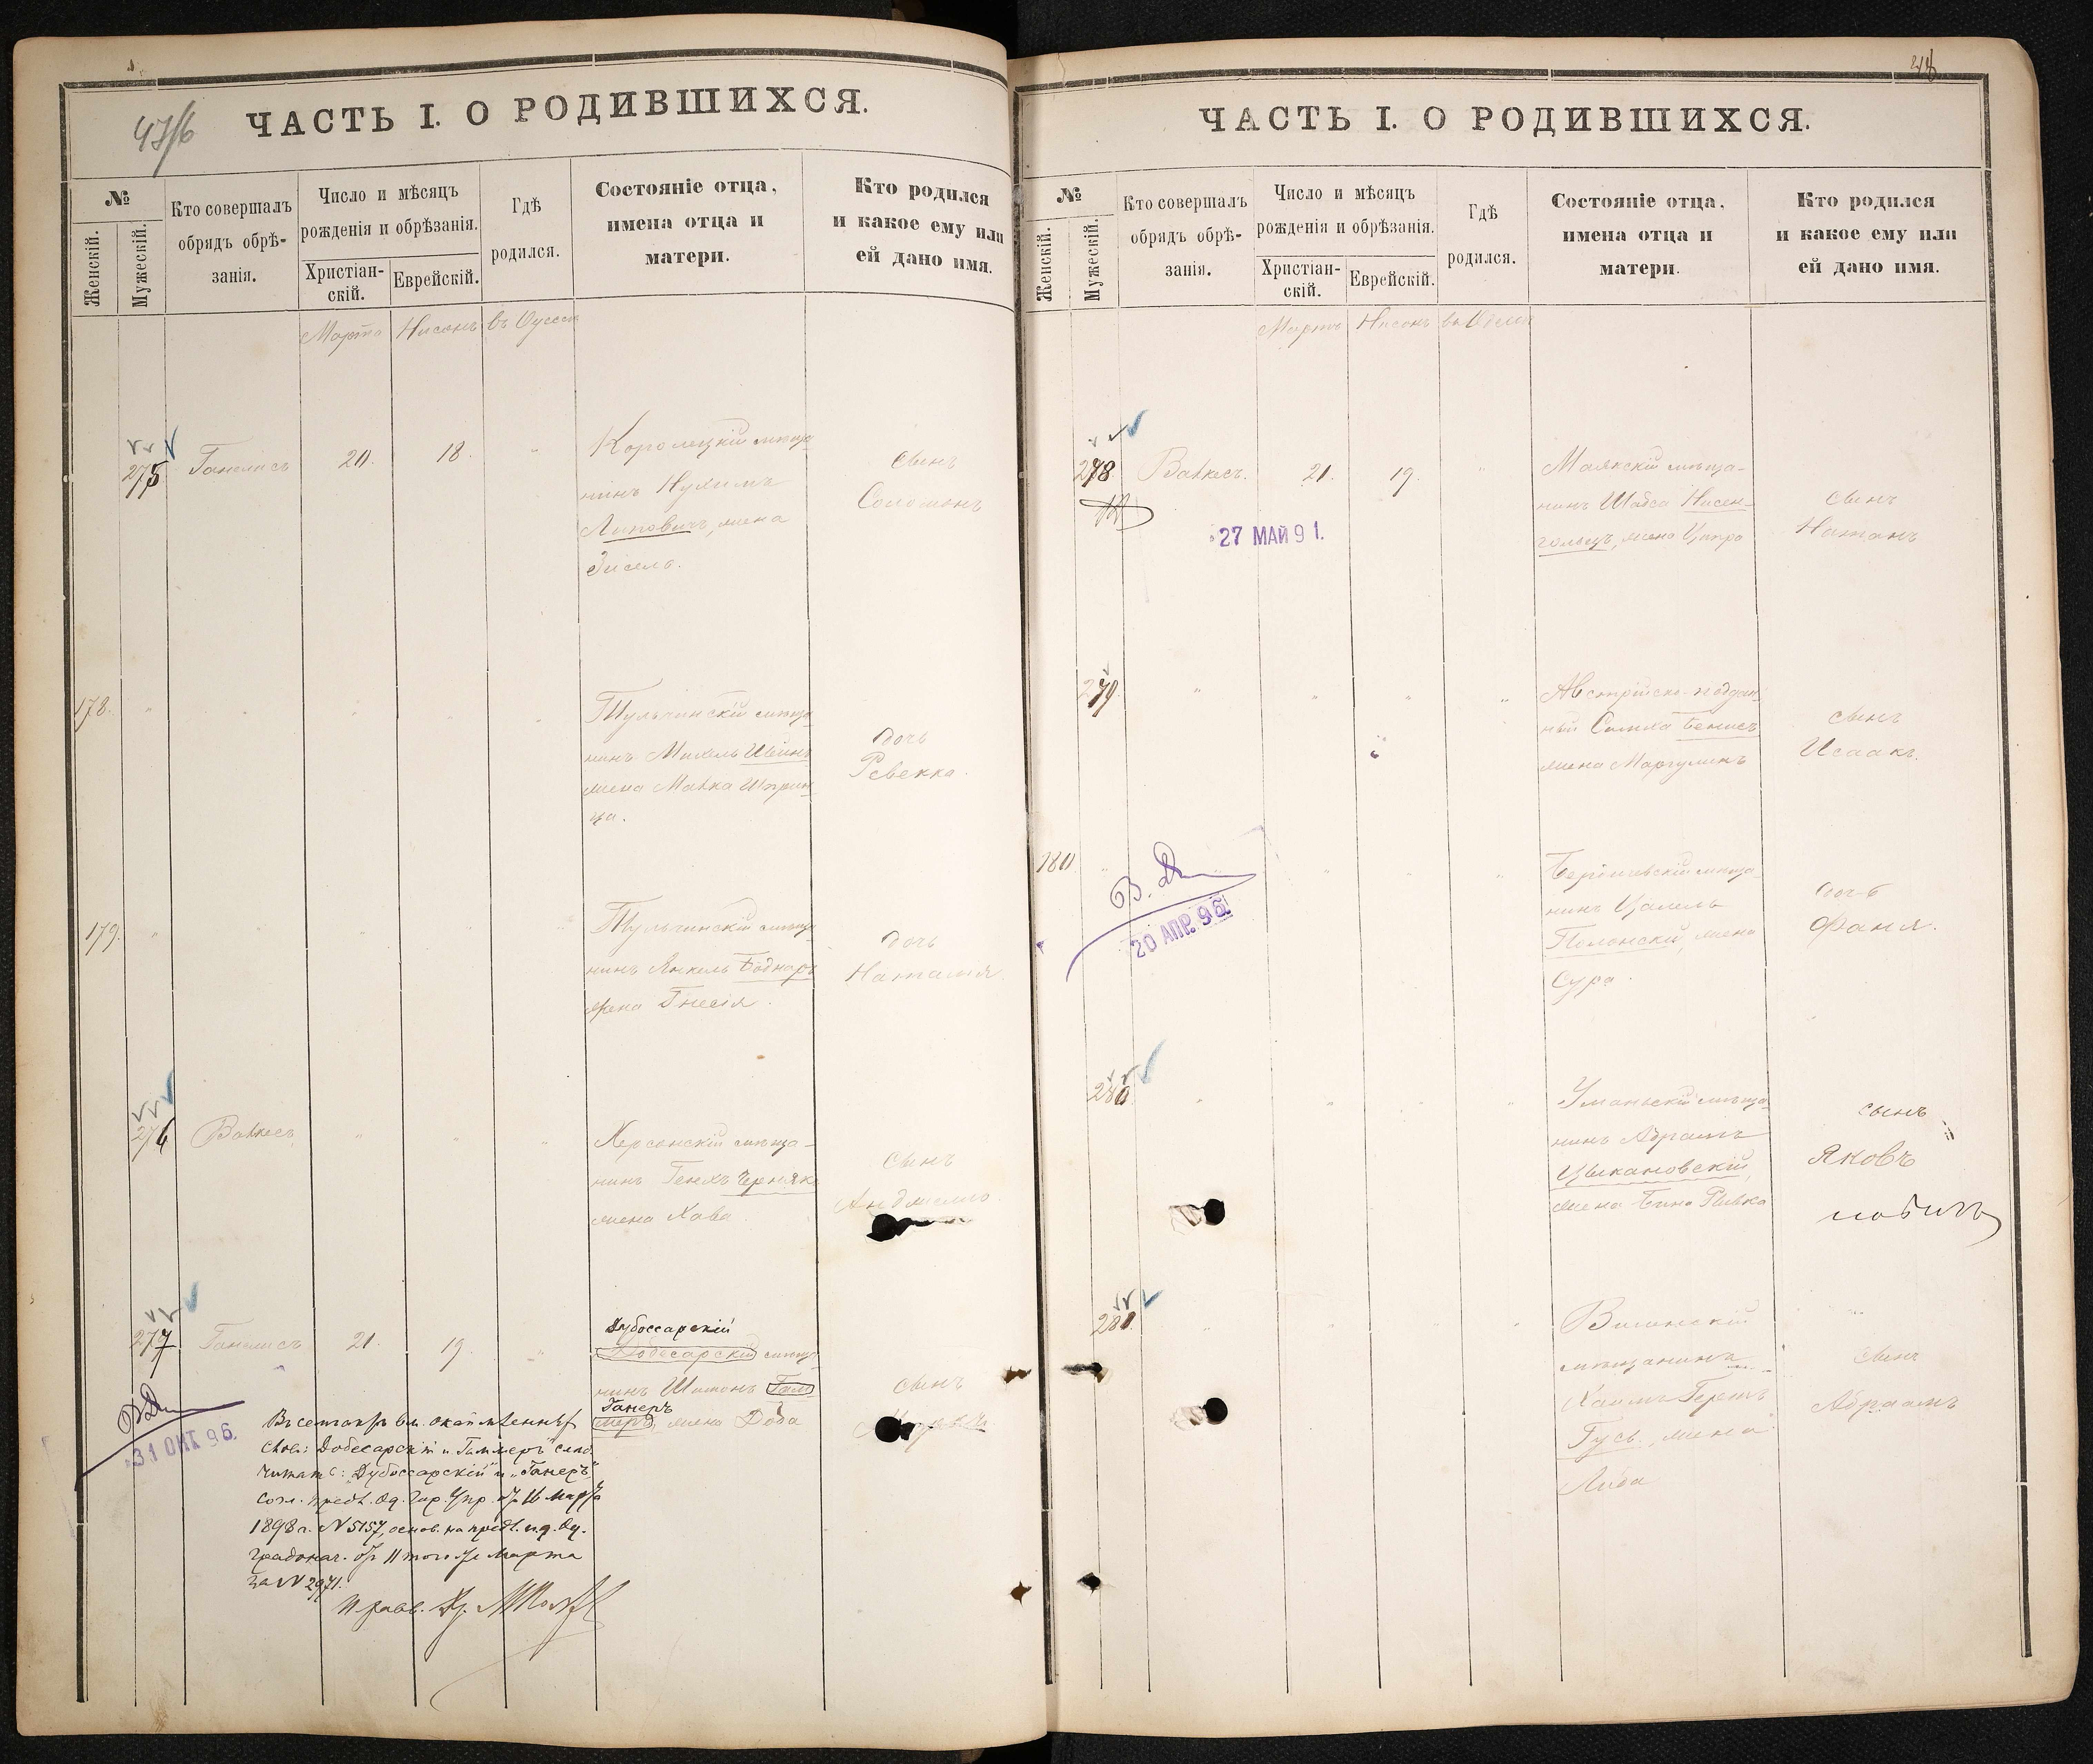 47/6
ЧАСТЬ I. О РОДИВШИХСЯ.
№
Женскій.
Мужескій.
Кто совершалъ
обрядъ обрѣ-
занія.
Число и мѣсяцъ
рожденія и обрѣзанія.
Христіан-
скій.
Еврейскій.
Гдѣ
родился.
Состояніе отца,
имена отца и
матери.
Кто родился
и какое ему или
ей дано имя.
Марта Нисонъ въ Одессѣ
275 20. 18. " Королецкій мѣща-
нинъ Нухимъ
Липовичъ, жена
Зисель.
сынъ
Соломонъ
178. " " " " Тульчинскій мѣща-
нинъ Михель
жена Малка Шприн
ца.
дочь
Ревекка.
179. " " " " Тульчинскій мѣща-
нинъ Янкель Боднаръ
жена Гнесія.
дочь
Наталія.
276 " " " Херсонскій мѣща-
нинъ Генихъ Чернякъ
жена Хава
сынъ
277 21. 19. "
Дубоссарскій
Добесарскій мѣща-
нинъ Шимонъ Гам
Ганеръ
меръ, жена Доба
сынъ
31 ОКТ 96.
Въ сей
слов: Добесарскій и Гаммеръ слѣд.
читать: „Дубоссарскій" и „Ганеръ"
согл. предл. Од. Гор. Упр. отъ 16 Марта
1898 г. N 5157, основ. на предл. и.д. Од.
градонач. отъ 11 того же Марта
за N 2971.
48
ЧАСТЬ I. О РОДИВШИХСЯ.
№
Женскій.
Мужескій.
Кто совершалъ
обрядъ обрѣ-
занія.
Число и мѣсяцъ
рожденія и обрѣзанія.
Христіан-
скій.
Еврейскій.
Гдѣ
родился.
Состояніе отца,
имена отца и
матери.
Кто родился
и какое ему или
ей дано имя.
Марта Нисонъ въ Одессѣ
278. 21. 19. " Маякскій мѣща-
нинъ Шабса Нисен-
гольцъ, жена Ципра
сынъ
Натанъ
27 МАЙ 91.
279. " " " " Австрійско-поддан-
ный Симха Бенисъ
жена Маргуликъ
сынъ
Исаакъ.
180 " " " " Бердичевскій мѣща-
нинъ Цалель
Полонскій, жена
Сура.
дочь
Фаня.
20 АПР. 96.
280. " " " " Уманьскій мѣща-
нинъ Абрамъ
Цыкановскій,
жена Бина Ривка
сынъ
Яковъ
281. " " " " Виленскій
мѣщанинъ
Хаимъ Гершъ
Гусь, жена
Либа
сынъ
Абрамъ